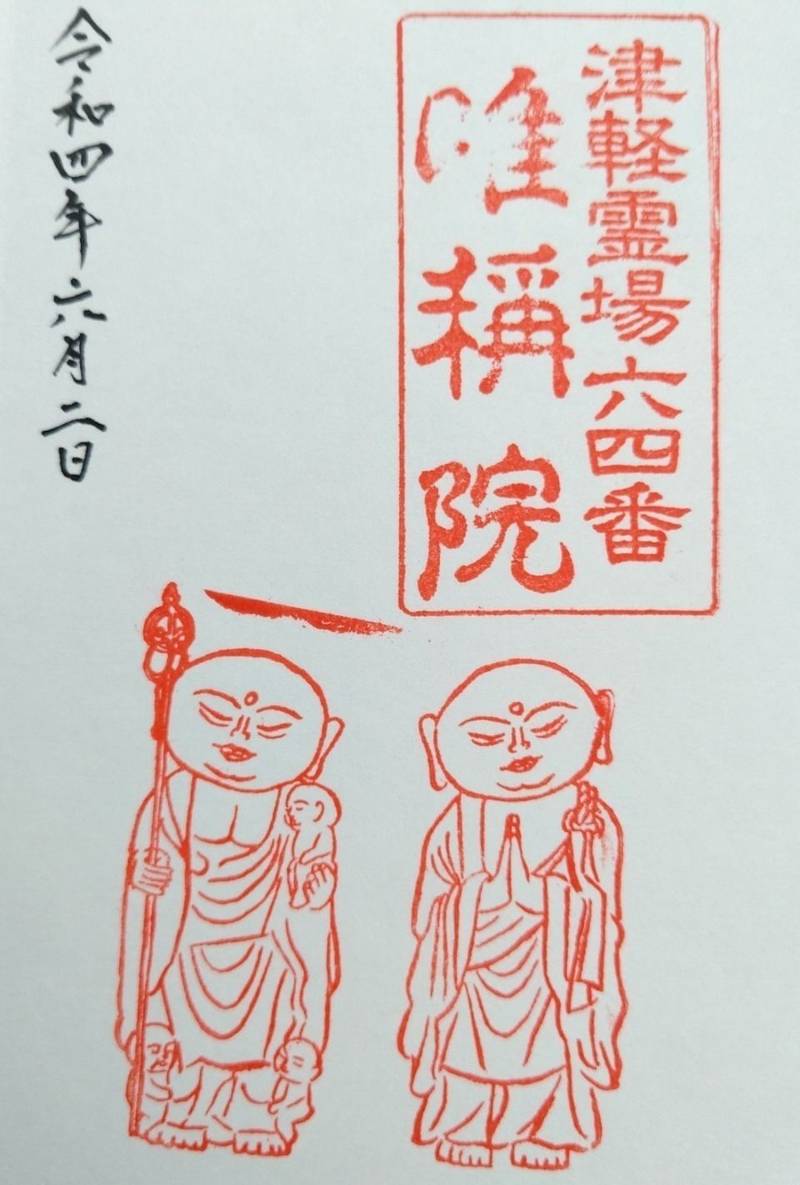 津軽霊場六四番
唯稱院
令和四年六月二日